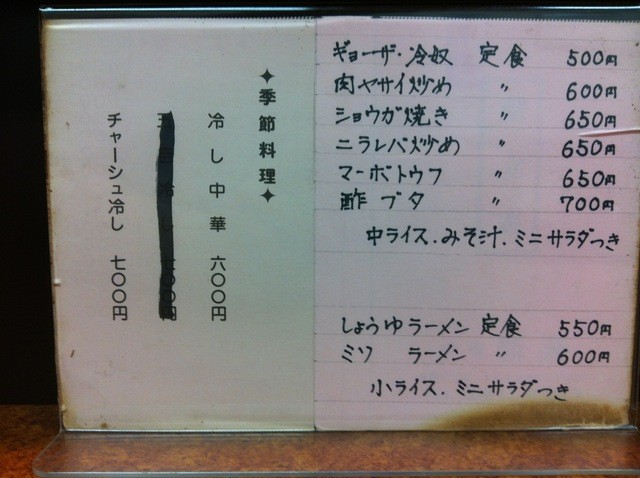 ✦季節料理✦
冷し中華 六〇〇円
チャーシュ冷し 七〇〇円
ギョーザ・冷奴 定食 500円
肉ヤサイ炒め 〃 600円
ショウガ焼き 〃 650円
ニラレバ炒め 〃 650円
マーボトウフ 〃 650円
酢ブタ 〃 700円
中ライス.みそ汁.ミニサラダつき
しょうゆラーメン 定食 550円
ミソ ラーメン 〃 600円
小ライス.ミニサラダつき